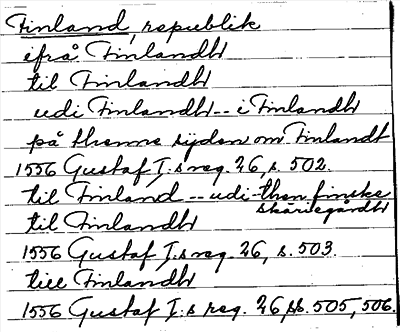 Finland, republik
ifrå Finlandh
til Finlandh
udi Finlandh -- i Finlandh
på thenne sijdan om Finlandt
1556 Gustaf I:s reg. 26, s. 502.
til Finland -- udi then finske
skäriegårdh
til Finlandh
1556 Gustaf I:s reg. 26, s. 503.
till Finlandh
1556 Gustaf I:s reg. 26, ss. 505, 506.